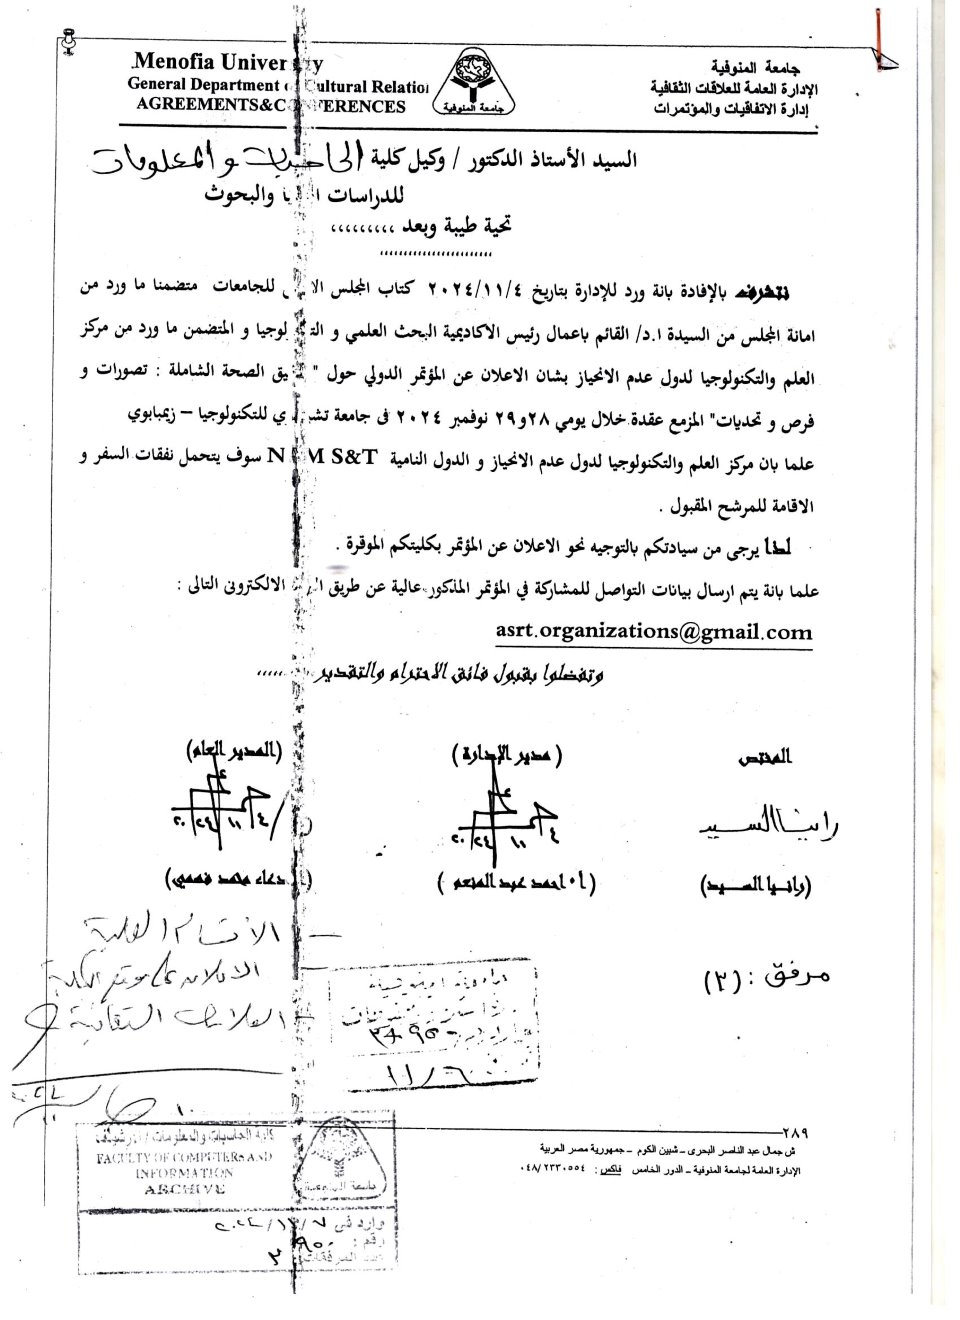 Menofia University
General Department of Cultural Relatio
AGREEMENTS&CONFERENCES
جامعة المنوفية
جامعة المنوفية
الإدارة العامة للعلاقات الثقافية
إدارة الاتفاقيات والمؤتمرات
السيد الأستاذ الدكتور / وكيل كلية الحاسبات والمعلومات
للدراسات العليا والبحوث
تحية طيبة وبعد ,,,,,,,,,
نتشرف بالإفادة بانة ورد للإدارة بتاريخ ٢٠٢٤/١١/٤ كتاب المجلس الاعلى للجامعات متضمنا ما ورد من
امانة المجلس من السيدة ا.د/ القائم باعمال رئيس الاكاديمية البحث العلمي و التكنولوجيا و المتضمن ما ورد من مركز
العلم والتكنولوجيا لدول عدم الانحياز بشان الاعلان عن المؤتمر الدولي حول " تحقيق الصحة الشاملة : تصورات و
فرص و تحديات" المزمع عقدة خلال يومي ٢٨و٢٩ نوفمبر ٢٠٢٤ فى جامعة للتكنولوجيا – زيمبابوي
علما بان مركز العلم والتكنولوجيا لدول عدم الانحياز و الدول النامية NAM S&T سوف يتحمل نفقات السفر و
الاقامة للمرشح المقبول .
لذا يرجى من سيادتكم بالتوجيه نحو الاعلان عن المؤتمر بكليتكم الموقرة .
علما بانة يتم ارسال بيانات التواصل للمشاركة في المؤتمر المذكور عالية عن طريق البريد الالكترونى التالى :
asrt.organizations@gmail.com
وتفضلوا بقبول فائق الاحترام والتقدير ,,,,,,
المختص
(مدير الإدارة)
(المدير العام)
رانيا السيد
٢٠٢٤ ١١ ٤
٢٠٢٤ ١١ ٤
(رانيا السيد)
(أ. احمد عبد المنعم)
دعاء محمد فهمي)
الأقسام العلمية
الاعلان على موقع الكلية
العلاقات الثقافية
مرفق : (٣)
٢٨٩
ش جمال عبد الناصر البحرى – شبين الكوم – جمهورية مصر العربية
الإدارة العامة لجامعة المنوفية – الدور الخامس فاكس : ٠٤٨/٢٣٣٠٥٥٤
كلية الحاسبات والمعلومات / الأرشيف
FACULTY OF COMPUTERS AND
INFORMATION
ARCHIVE
جامعة المنوفية
وارد فى
رقم : ٩٥٠
عدد المرفقات: ٣